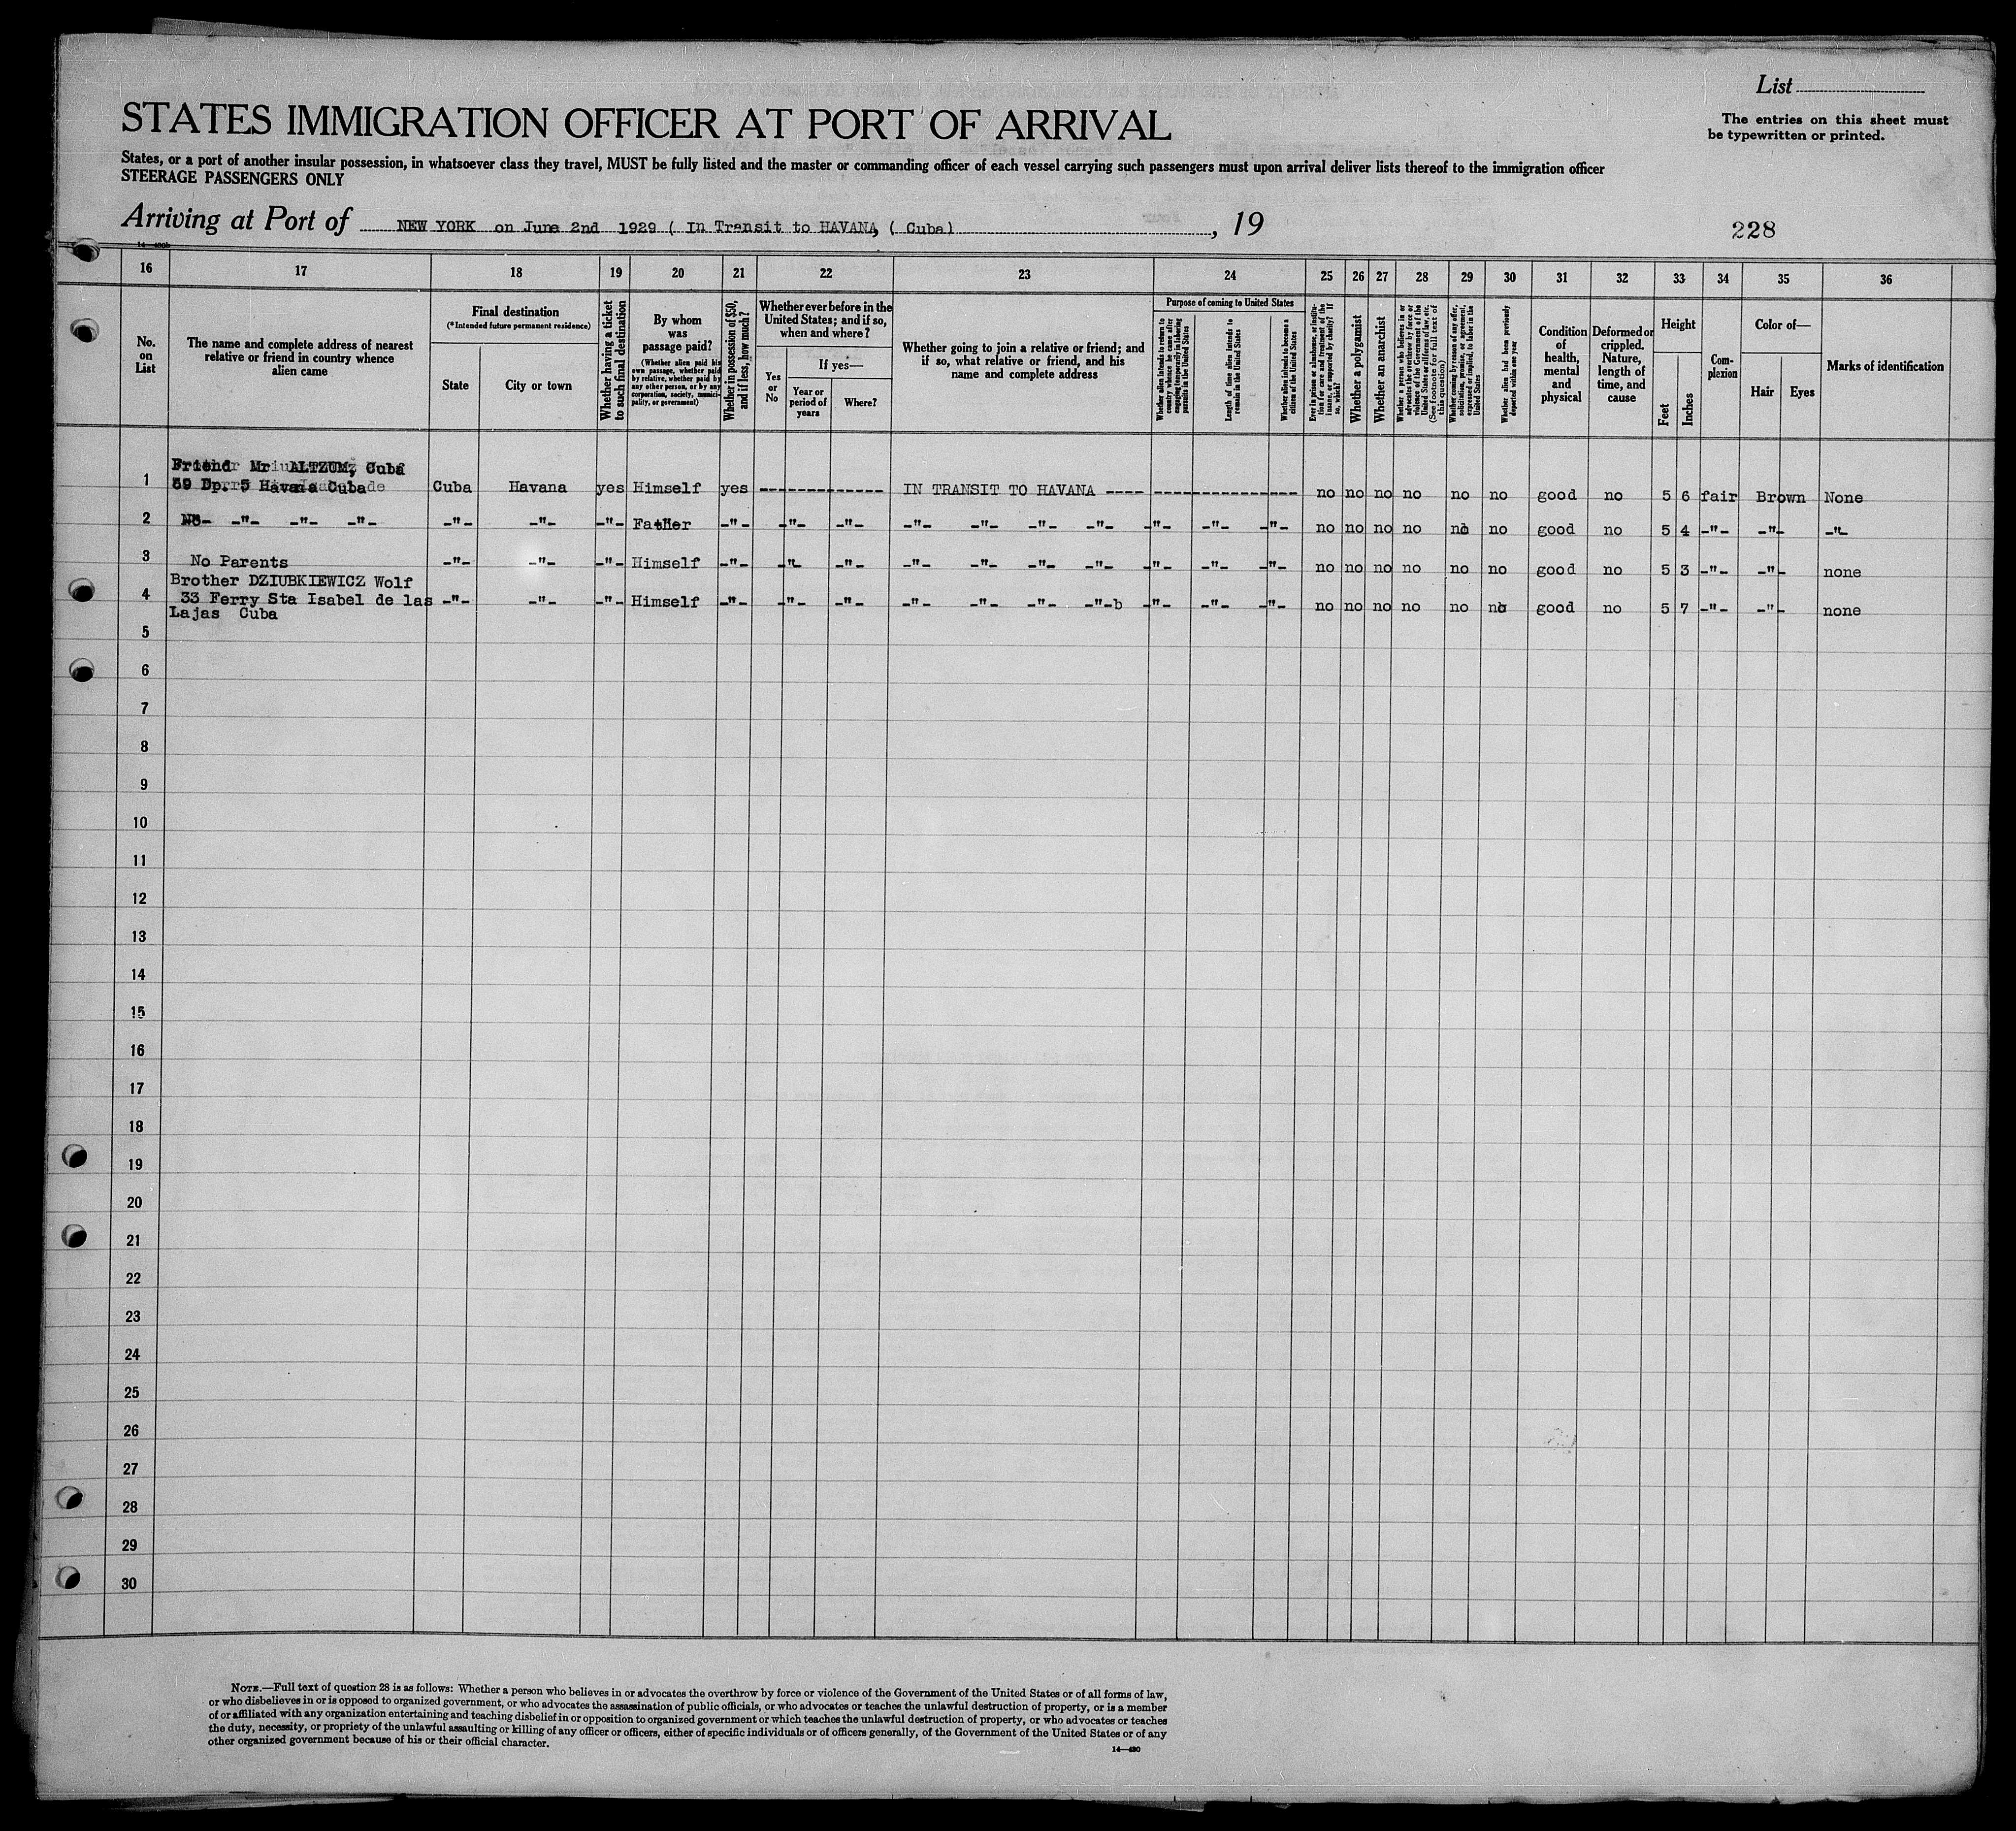 List
The entries on this sheet must
be typewritten or printed.
STATES IMMIGRATION OFFICER AT PORT OF ARRIVAL
States, or a port of another insular possession, in whatsoever class they travel, MUST be fully listed and the master or commanding officer of each vessel carrying such passengers must upon arrival deliver lists thereof to the immigration officer
STEERAGE PASSENGERS ONLY
Arriving at Port of NEW YORK on June 2nd 1929 ( In Transit to HAVANA, ( Cuba) , 19
228
16 17 18 19 20 21 22 23 24 25 26 27 28 29 30 31 32 33 34 35 36
No. on List
The name and complete address of nearest relative or friend in country whence alien came
Final destination
(*Intended future permanent residence)
State
City or town
Whether having a ticket to such final destination
By whom was passage paid?
(Whether alien paid his own passage, whether paid by relative, whether paid by any other person, or by any corporation, society, municipality, or government)
Whether in possession of $50, and if less, how much?
Whether ever before in the United States; and if so, when and where?
Yes or No
If yes—
Year or period of years
Where?
Whether going to join a relative or friend; and if so, what relative or friend, and his name and complete address
Purpose of coming to United States
Whether alien intends to return to country whence he came after engaging temporarily in laboring pursuits in the United States
Length of time alien intends to remain in the United States
Whether alien intends to become a citizen of the United States
Ever in prison or almshouse, or institution for care and treatment of the insane, or supported by charity? If so, which?
Whether a polygamist
Whether an anarchist
Whether a person who believes in or advocates the overthrow by force or violence of the Government of the United States or all forms of law, etc. (See footnote for full text of this question)
Whether coming by reason of any offer, solicitation, promise, or agreement, expressed or implied, to labor in the United States
Whether alien had been previously deported within one year
Condition of health, mental and physical
Deformed or crippled. Nature, length of time, and cause
Height
Feet
Inches
Complexion
Color of—
Hair
Eyes
Marks of identification
Friend Mr ALTZUM, Cuba
1 59 Dp. 5 Havana Cuba Cuba Havana yes Himself yes ------------- IN TRANSIT TO HAVANA ---- ---------------- no no no no no no good no 5 6 fair Brown None
2 -"- -"- -"- -"- -"- -"- Father -"- -"- -"- -"- -"- -"- -"- -"- -"- -"- no no no no no no good no 5 4 -"- -"- -"-
3 No Parents -"- -"- -"- Himself -"- -"- -"- -"- -"- -"- -"- -"- -"- -"- no no no no no no good no 5 3 -"- -"- none
Brother DZIUBKIEWICZ Wolf
4 33 Ferry Sta Isabel de las -"- -"- -"- Himself -"- -"- -"- -"- -"- -"- -"-b -"- -"- -"- no no no no no no good no 5 7 -"- -"- none
Lajas Cuba
5
6
7
8
9
10
11
12
13
14
15
16
17
18
19
20
21
22
23
24
25
26
27
28
29
30
NOTE.—Full text of question 28 is as follows: Whether a person who believes in or advocates the overthrow by force or violence of the Government of the United States or of all forms of law,
or who disbelieves in or is opposed to organized government, or who advocates the assassination of public officials, or who advocates or teaches the unlawful destruction of property, or is a member
of or affiliated with any organization entertaining and teaching disbelief in or opposition to organized government or which teaches the unlawful destruction of property, or who advocates or teaches
the duty, necessity, or propriety of the unlawful assaulting or killing of any officer or officers, either of specific individuals or of officers generally, of the Government of the United States or of any
other organized government because of his or their official character.
14—430